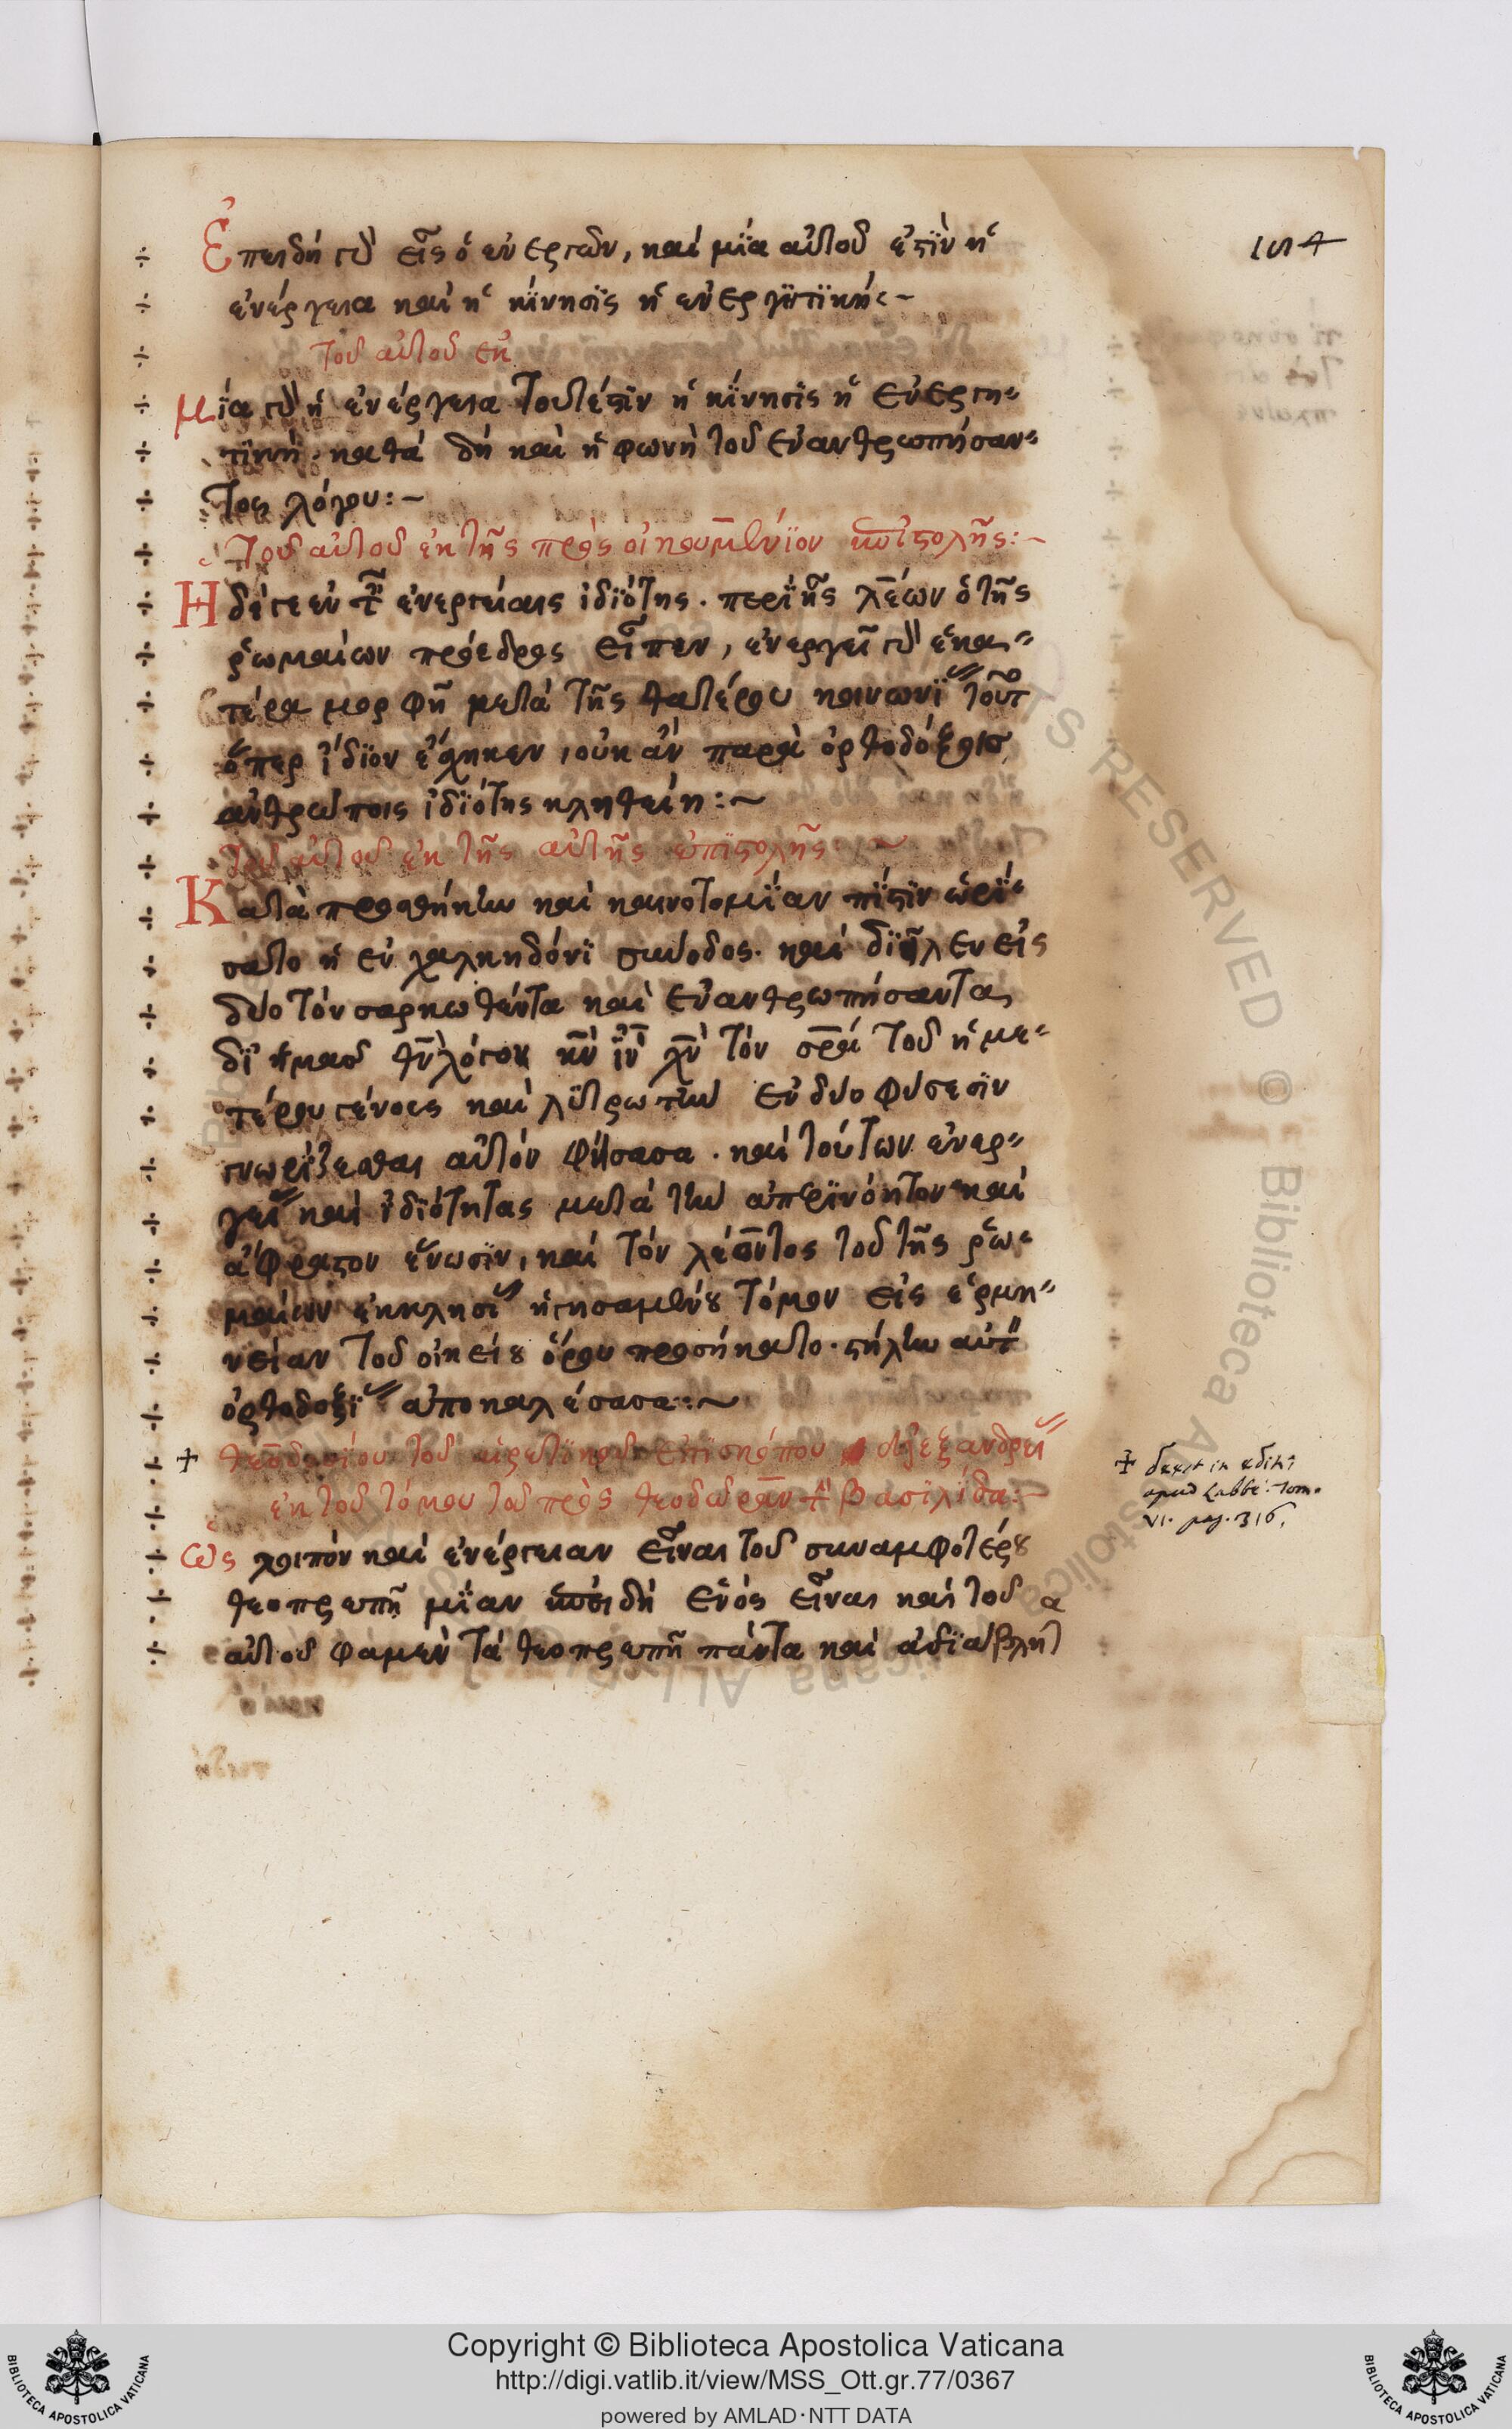 Ἐπειδὴ γὰρ εἷς ὁ ἐνεργῶν, καὶ μία αὐτοῦ ἐστὶν ἡ
ἐνέργεια καὶ ἡ κίνησϊς ἡ ἐνεργϊτϊκή:~
Τοῦ αὐτοῦ ἐκ
Μΐα γὰρ ἡ ἐνέργεια τουτέστϊν ἡ κΐνησϊς ἡ ἐνεργη-
τϊκή· καθὰ δὴ καὶ ἡ φωνὴ τοῦ ἐνανθρωπήσαν-
τος λόγου:~
Τοῦ αὐτοῦ ἐκ τῆς πρὸς οἰκουμένϊον ἐπιστολῆς:~
Ἡ δέ γε ἐν ταῖς ἐνεργείαις ἰδϊότης. περὶ ἧς λέων ὁ τῆς
ῥωμαίων πρόεδρος εἶπεν, ἐνεργεῖ γὰρ ἑκα-
τέρα μορφῇ μετὰ τῆς θατέρου κοινωνΐας τοῦθ
ὅπερ ἴδϊον ἔσχηκεν, οὐκ ἂν παρὰ ὀρθοδόξοις
ἀνθρώποις ἰδϊότης κληθείη:~
Τοῦ αὐτοῦ ἐκ τῆς αὐτῆς ἐπϊστολῆς:~
Κατὰ προσθήκην καὶ καινοτομΐαν πΐστϊν ὡρΐ-
σατο ἡ ἐν χαλκηδόνϊ σύνοδος. καὶ διεῖλεν εἰς
δύο τὸν σαρκωθέντα καὶ ἐνανθρωπήσαντα
δϊ' ἡμᾶς θν λόγον κν ιν χν τὸν σρα τοῦ ἡμε-
τέρου γένους καὶ λϋτρωτὴν ἐν δύο φύσεσϊν
γνωρΐζεσθαι αὐτὸν φήσασα. καὶ τούτων ἐνερ-
γείας καὶ ἰδϊότητας μετὰ τὴν ἀπερϊνόητον καὶ
ἄφραστον ἕνωσϊν, καὶ τὸν λέοντος τοῦ τῆς ῥω-
μαίων ἐκκλησίας ἡγησαμένου τόμον εἰς ἑρμη-
νείαν τοῦ οἰκείου ὅρου προσήκατο. στήλην αὐτὸν
ὀρθοδοξΐας ἀποκαλέσασα:~
+ Θεοδοσίου τοῦ αἱρετϊκοῦ ἐπϊσκόπου ἀλεξανδρείας
ἐκ τοῦ τόμου τοῦ πρὸς θεοδώραν τὴν βασϊλΐδα:~
Ὡς λοιπὸν καὶ ἐνέργειαν εἶναι τοῦ συναμφοτέρου
θεοπρεπῆ μΐαν ἐπειδὴ ἑνὸς εἶναι καὶ τοῦ
αὐτοῦ φαμὲν τὰ θεοπρεπῆ πάντα καὶ ἀδϊάβλητα
+ deest in editis
apud Labbè. Tom.
VI. pag. 316.
Copyright © Biblioteca Apostolica Vaticana
http://digi.vatlib.it/view/MSS_Ott.gr.77/0367
powered by AMLAD·NTT DATA
BIBLIOTECA APOSTOLICA VATICANA
BIBLIOTECA APOSTOLICA VATICANA